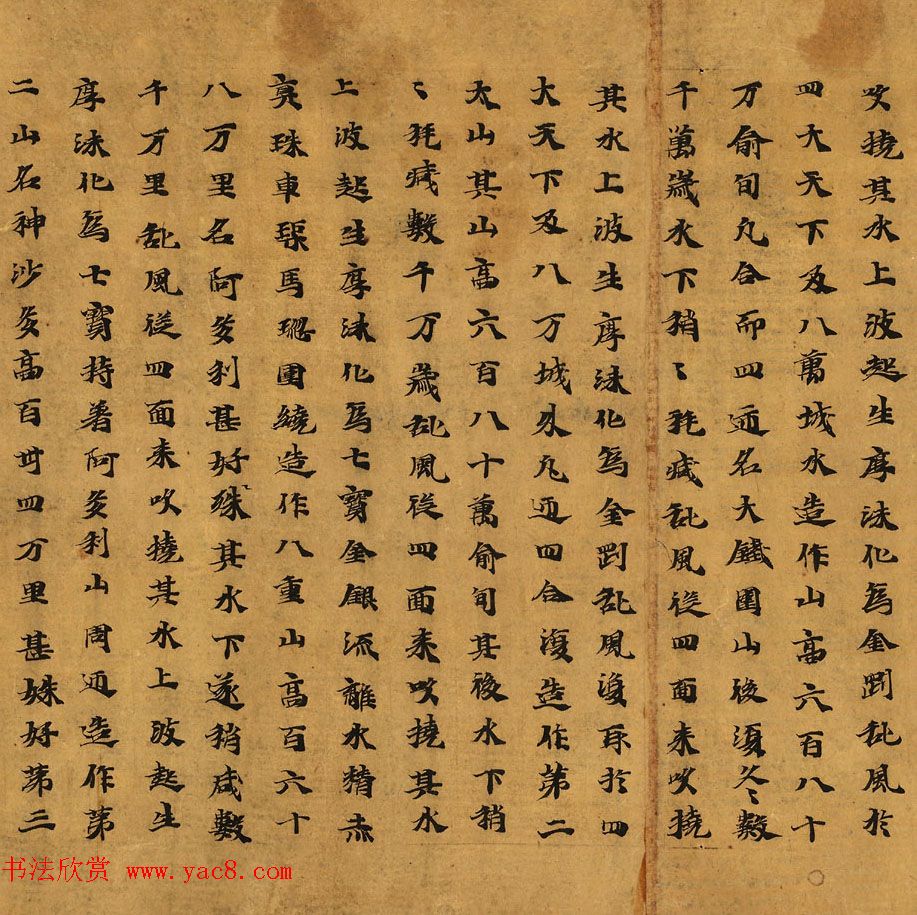 吹撓其水上波起生厚沫化為金剛乱風於
四大天下及八萬城水造作山高六百八十
万俞旬凡合而四迊名大鐵圍山後復久久數
千萬歲水下稍〻耗減乱風從四面来吹撓
其水上波生厚沫化為金剛乱風復取於四
大天下及八万城外凡迊四合復造作第二
大山其山高六百八十萬俞旬其後水下稍
〻耗減數千万歲乱風從四面来吹撓其水
上波起生厚沫化為七寶金銀流離水精赤
真珠車璖馬瑙圍繞造作八重山高百六十
八万里名阿多利甚好姝其水下遂稍減數
千万里乱風從四面来吹撓其水上波起生
厚沫化為七寶持著阿多利山周迊造作第
二山名神沙多高百卌四万里甚姝好第三
书法欣赏 www.yac8.com